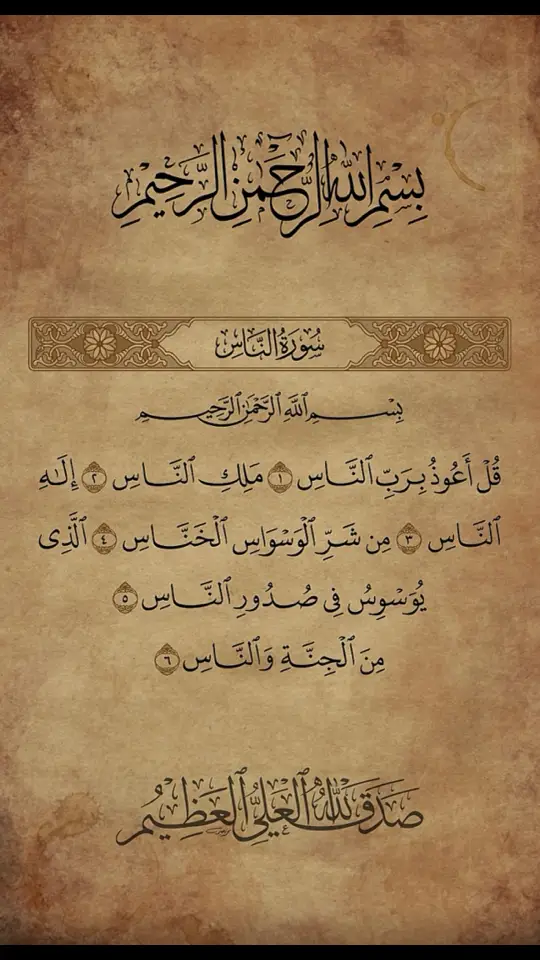 بِسْمِ اللهِ الرَّحْمَنِ الرَّحِيْمِ
سُورَةُ النَّاسِ
بِسْمِ ٱللَّهِ ٱلرَّحْمَٰنِ ٱلرَّحِيمِ
قُلْ أَعُوذُ بِرَبِّ ٱلنَّاسِ ١ مَلِكِ ٱلنَّاسِ ٢ إِلَٰهِ
ٱلنَّاسِ ٣ مِن شَرِّ ٱلْوَسْوَاسِ ٱلْخَنَّاسِ ٤ ٱلَّذِى
يُوَسْوِسُ فِى صُدُورِ ٱلنَّاسِ ٥
مِنَ ٱلْجِنَّةِ وَٱلنَّاسِ ٦
صَدَقَ اللهُ الْعَلِيُّ الْعَظِيْمُ